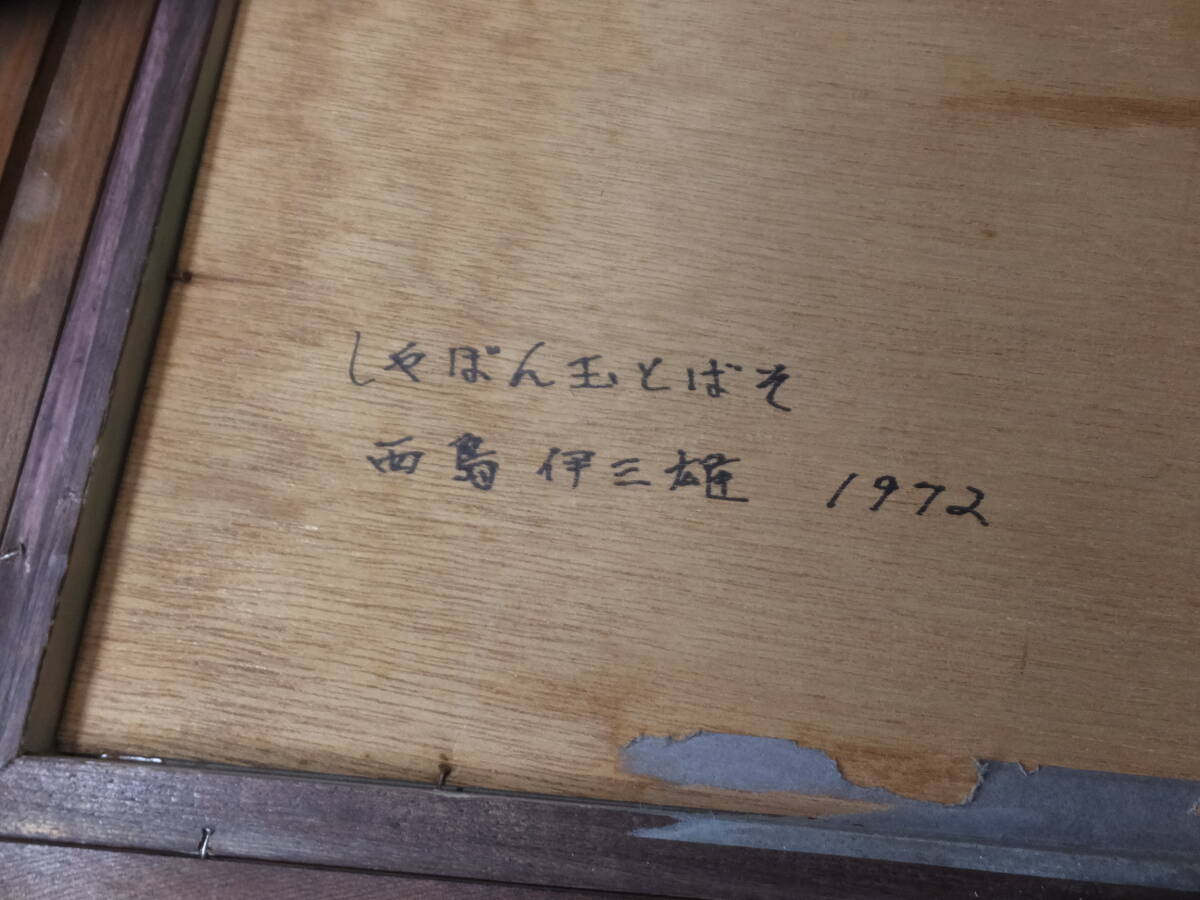 しゃぼん玉とばそ
西島伊三雄 1972